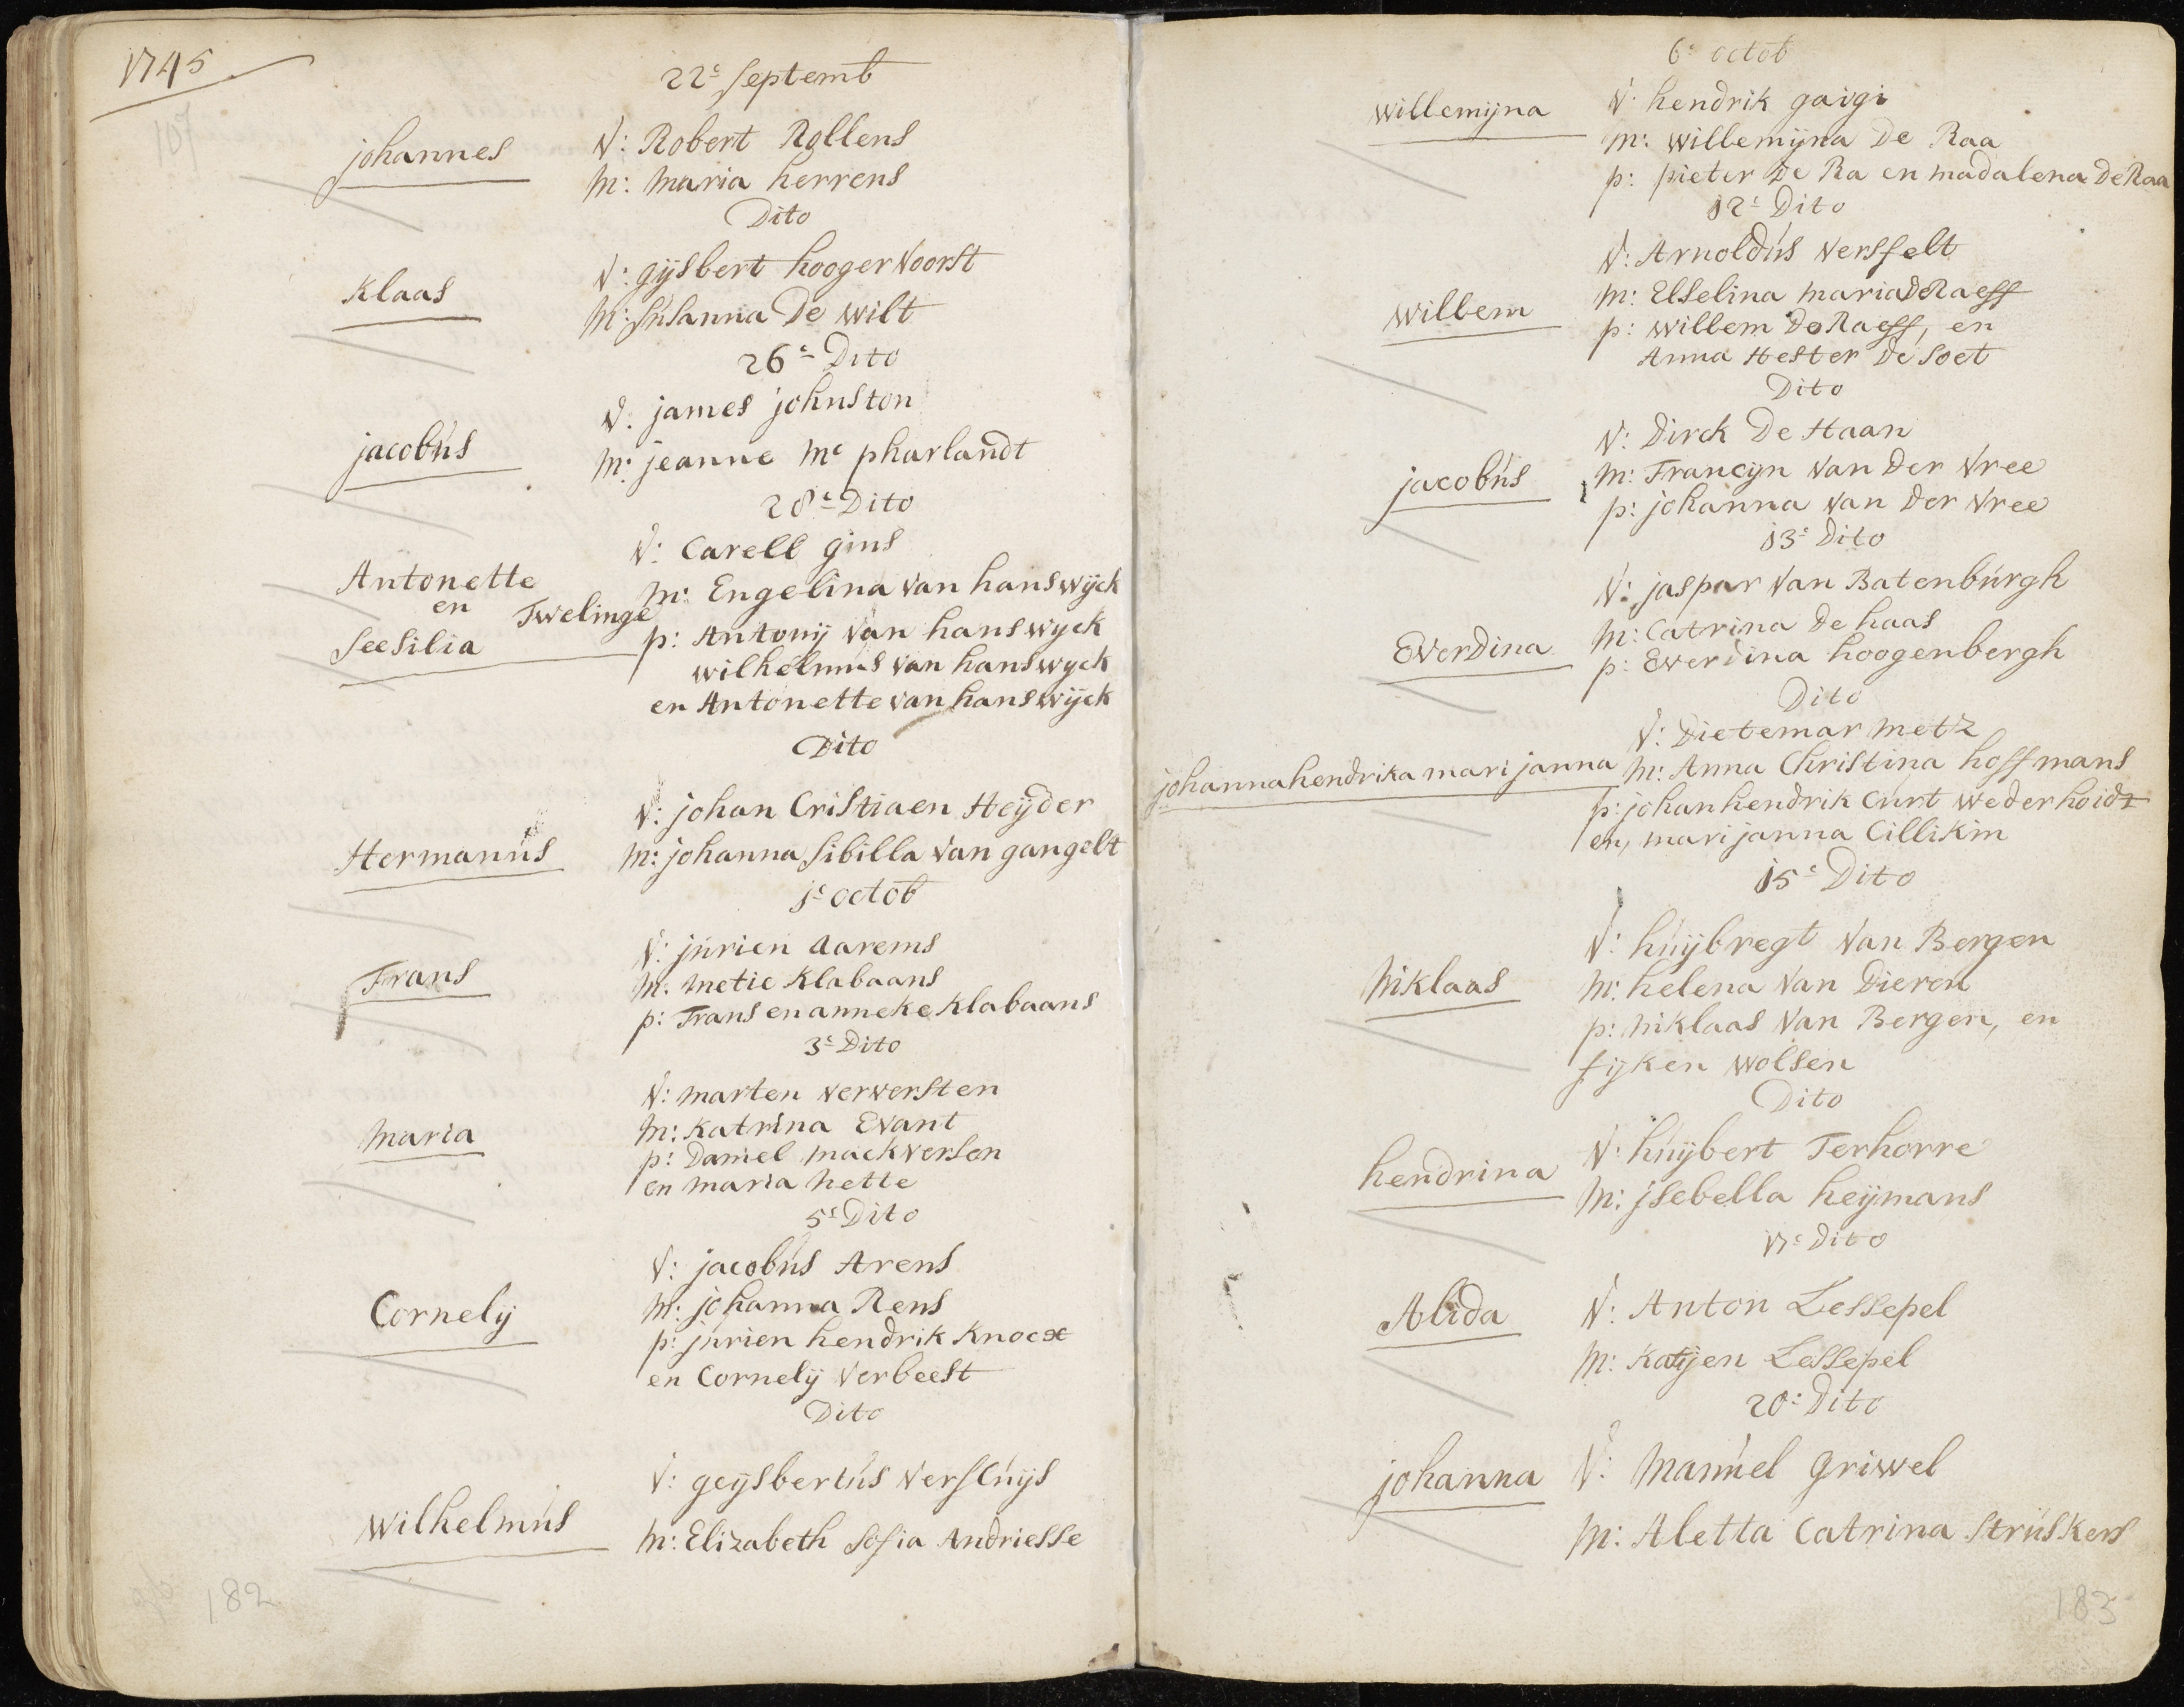 1745
107
22e Septemb
johannes
V: Robert Rollens
M: Maria herrens
Dito
Klaas
V: gijsbert hoogerVoorst
M: Susanna De Wilt
26e Dito
jacobus
V: james johnston
M: jeanne Mc pharlandt
28e Dito
Antonette
en Twelinge
Seesilia
V: Carell gins
M: Engelina Van hanswijck
p: Antonij Van hanswyck
wilhelmus Van hanswyck
en Antonette Van hanswijck
Dito
Hermanus
V: johan Cristiaen Heijder
M: johanna Sibilla Van gangelt
je octob
Frans
V: jurien Aarems
M: Metie Klabaans
p: Frans en anneke Klabaans
3e Dito
Maria
V: Marten Verversten
M: Katrina Evant
p: Daniel Mackverson
en Maria hette
5e Dito
Cornelij
V: jacobus Arens
M: johanna Rens
p: jurien hendrik Knoex
en Cornelij Verbeest
Dito
Wilhelmus
V: geijsbertus Versluijs
M: Elizabeth Sofia Andriesse
182
6e octob
Willemijna
V: hendrik gaigi
M: Willemijna De Raa
p: pieter De Ra en madalena De Raa
12e Dito
Willem
V: Arnoldus Versfelt
M: Elselina Maria de Raeff
p: Willem De Raeff, en
Anna Hester De Soet
Dito
jacobus
V: Dirck De Haan
M: Francijn Van Der Vree
p: johanna Van Der Vree
13e Dito
Everdina
V: jaspar Van Batenburgh
M: Catrina De haas
p: Everdina hoogenbergh
Dito
johanna hendrika marijanna
V: Dietemar Metz
M: Anna Christina hoffmans
p: johan hendrik Curt Wederhoidt
en, marijanna Cillikim
15e Dito
Niklaas
V: huijbregt Van Bergen
M: helena Van Dieren
p: Niklaas Van Bergen, en
fijken Wolsen
Dito
hendrina
V: huijbert Terhorre
M: jsebella heijmans
17e Dito
Alida
V: Anton Lessepel
M: Katijen Lessepel
20e Dito
johanna
V: Manuel Griwel
M: Aletta Catrina Struskers
183